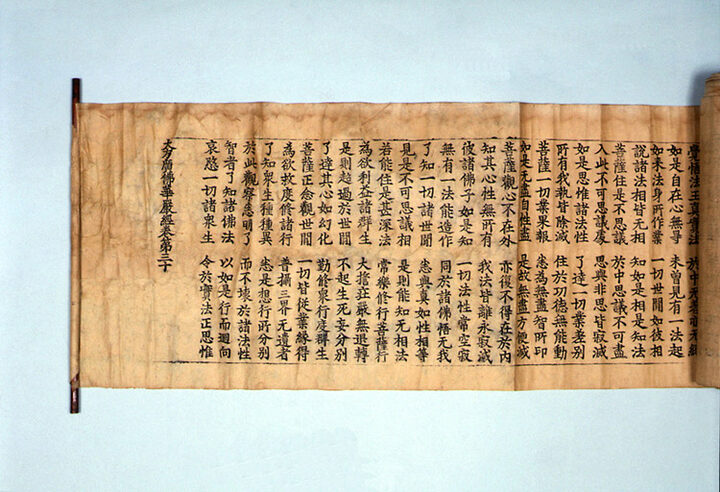 覺悟法王真實法 於中無著亦無縛
如是自在心無㝵 未曾見有一法起
如來法身所作業 一切世間如彼相
說諸法相皆無相 知如是相是知法
菩薩住是不思議 於中思議不可盡
入此不可思議處 思與非思皆寂滅
如是思惟諸法性 了達一切業差別
所有我執皆除滅 住於功德無能動
菩薩一切業果報 悉為無盡智所印
如是無盡自性盡 是故無盡方便滅
菩薩觀心不在外 亦復不得在於內
知其心性無所有 我法皆離永寂滅
彼諸佛子如是知 一切法性常空寂
無有一法能造作 同於諸佛悟無我
了知一切諸世間 悉與真如性相等
見是不可思議相 是則能知無相法
若能住是甚深法 常樂修行菩薩行
為欲利益諸群生 大擔莊嚴無退轉
是則超過於世間 不起生死妄分別
了達其心如幻化 勤修眾行度群生
菩薩正念觀世間 一切皆從業緣得
為欲救度修諸行 普攝三界无遺者
了知眾生種種異 悉是想行所分別
於此觀察悉明了 而不壞於諸法性
智者了知諸佛法 以如是行而迴向
哀愍一切諸眾生 令於實法正思惟
大方廣佛華嚴經卷第三十